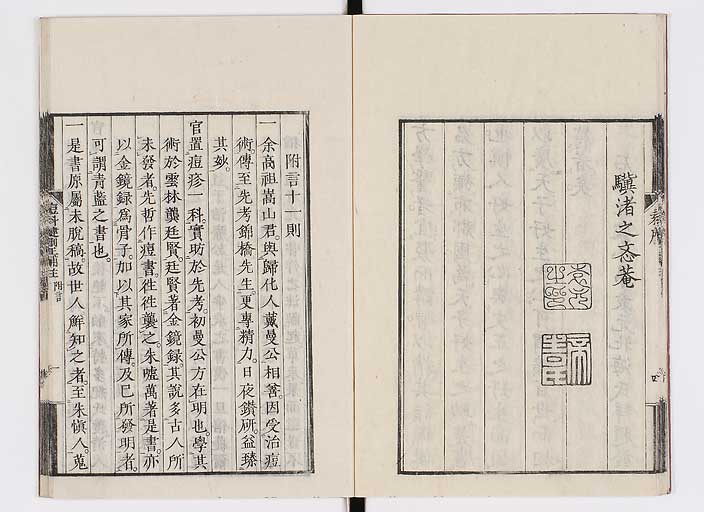 驥渚之忞菴
附言十一則
一余高祖嵩山君。與歸化人戴曼公相善。因受治痘
術。傳至先考錦橋先生。更專精力。日夜鑽研。益臻
其妙。
官置痘疹一科。實昉於先考。初曼公方在明也。學其
術於雲林龔廷賢。廷賢著金鏡録。其説多古人所
未發者。先哲作痘書。徃徃襲之。朱巘萬著是書。亦
以金鏡録爲骨子。加以其家所傳。及已所發明者。
可謂青藍之書也。
一是書原屬未脫稿。故世人鮮知之者。至朱慎人。蒐
附言
一